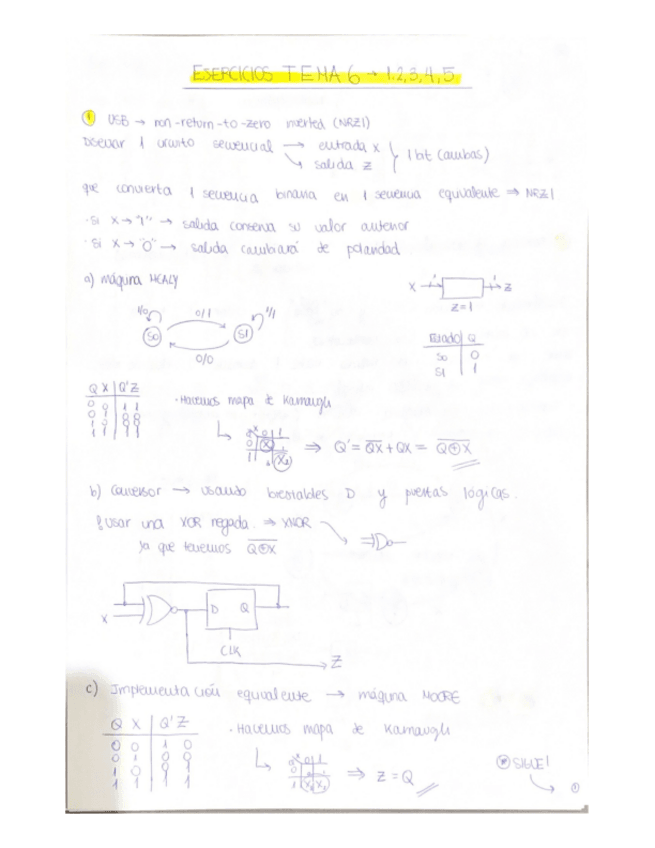 EJERCICIOS TEMA 6 → 1,2,3,4,5
① USB → non-return-to-zero inverted (NRZI)
Diseñar 1 circuito secuencial → entrada x
↘ salida z } 1 bit (ambas)
que convierta 1 secuencia binaria en 1 secuencia equivalente ⇒ NRZI
· Si X → "1" → salida conserva su valor anterior
· Si X → "0" → salida cambiará de polaridad
a) máquina MEALY
X → → Z
Z=1
1/0 0/1 1/1
S0 S1
0/0
Estado Q
S0 0
S1 1
Q X Q' Z
0 0 1 1
· Hacemos mapa de Karnaugh
⇒ Q' = \overline{QX} + QX = \overline{Q⊕X}
b) Conversor → usando biestables D y puertas lógicas.
Usar una XOR negada ⇒ XNOR
ya que tenemos \overline{Q⊕X}
X D Q
CLK
Z
c) Implementación equivalente → máquina MOORE
Q X Q' Z
0 0 1 0
0 1 0 0
1 0 0 1
1 1 1 1
· Hacemos mapa de Karnaugh
⇒ Z = Q
* SIGUE!
①